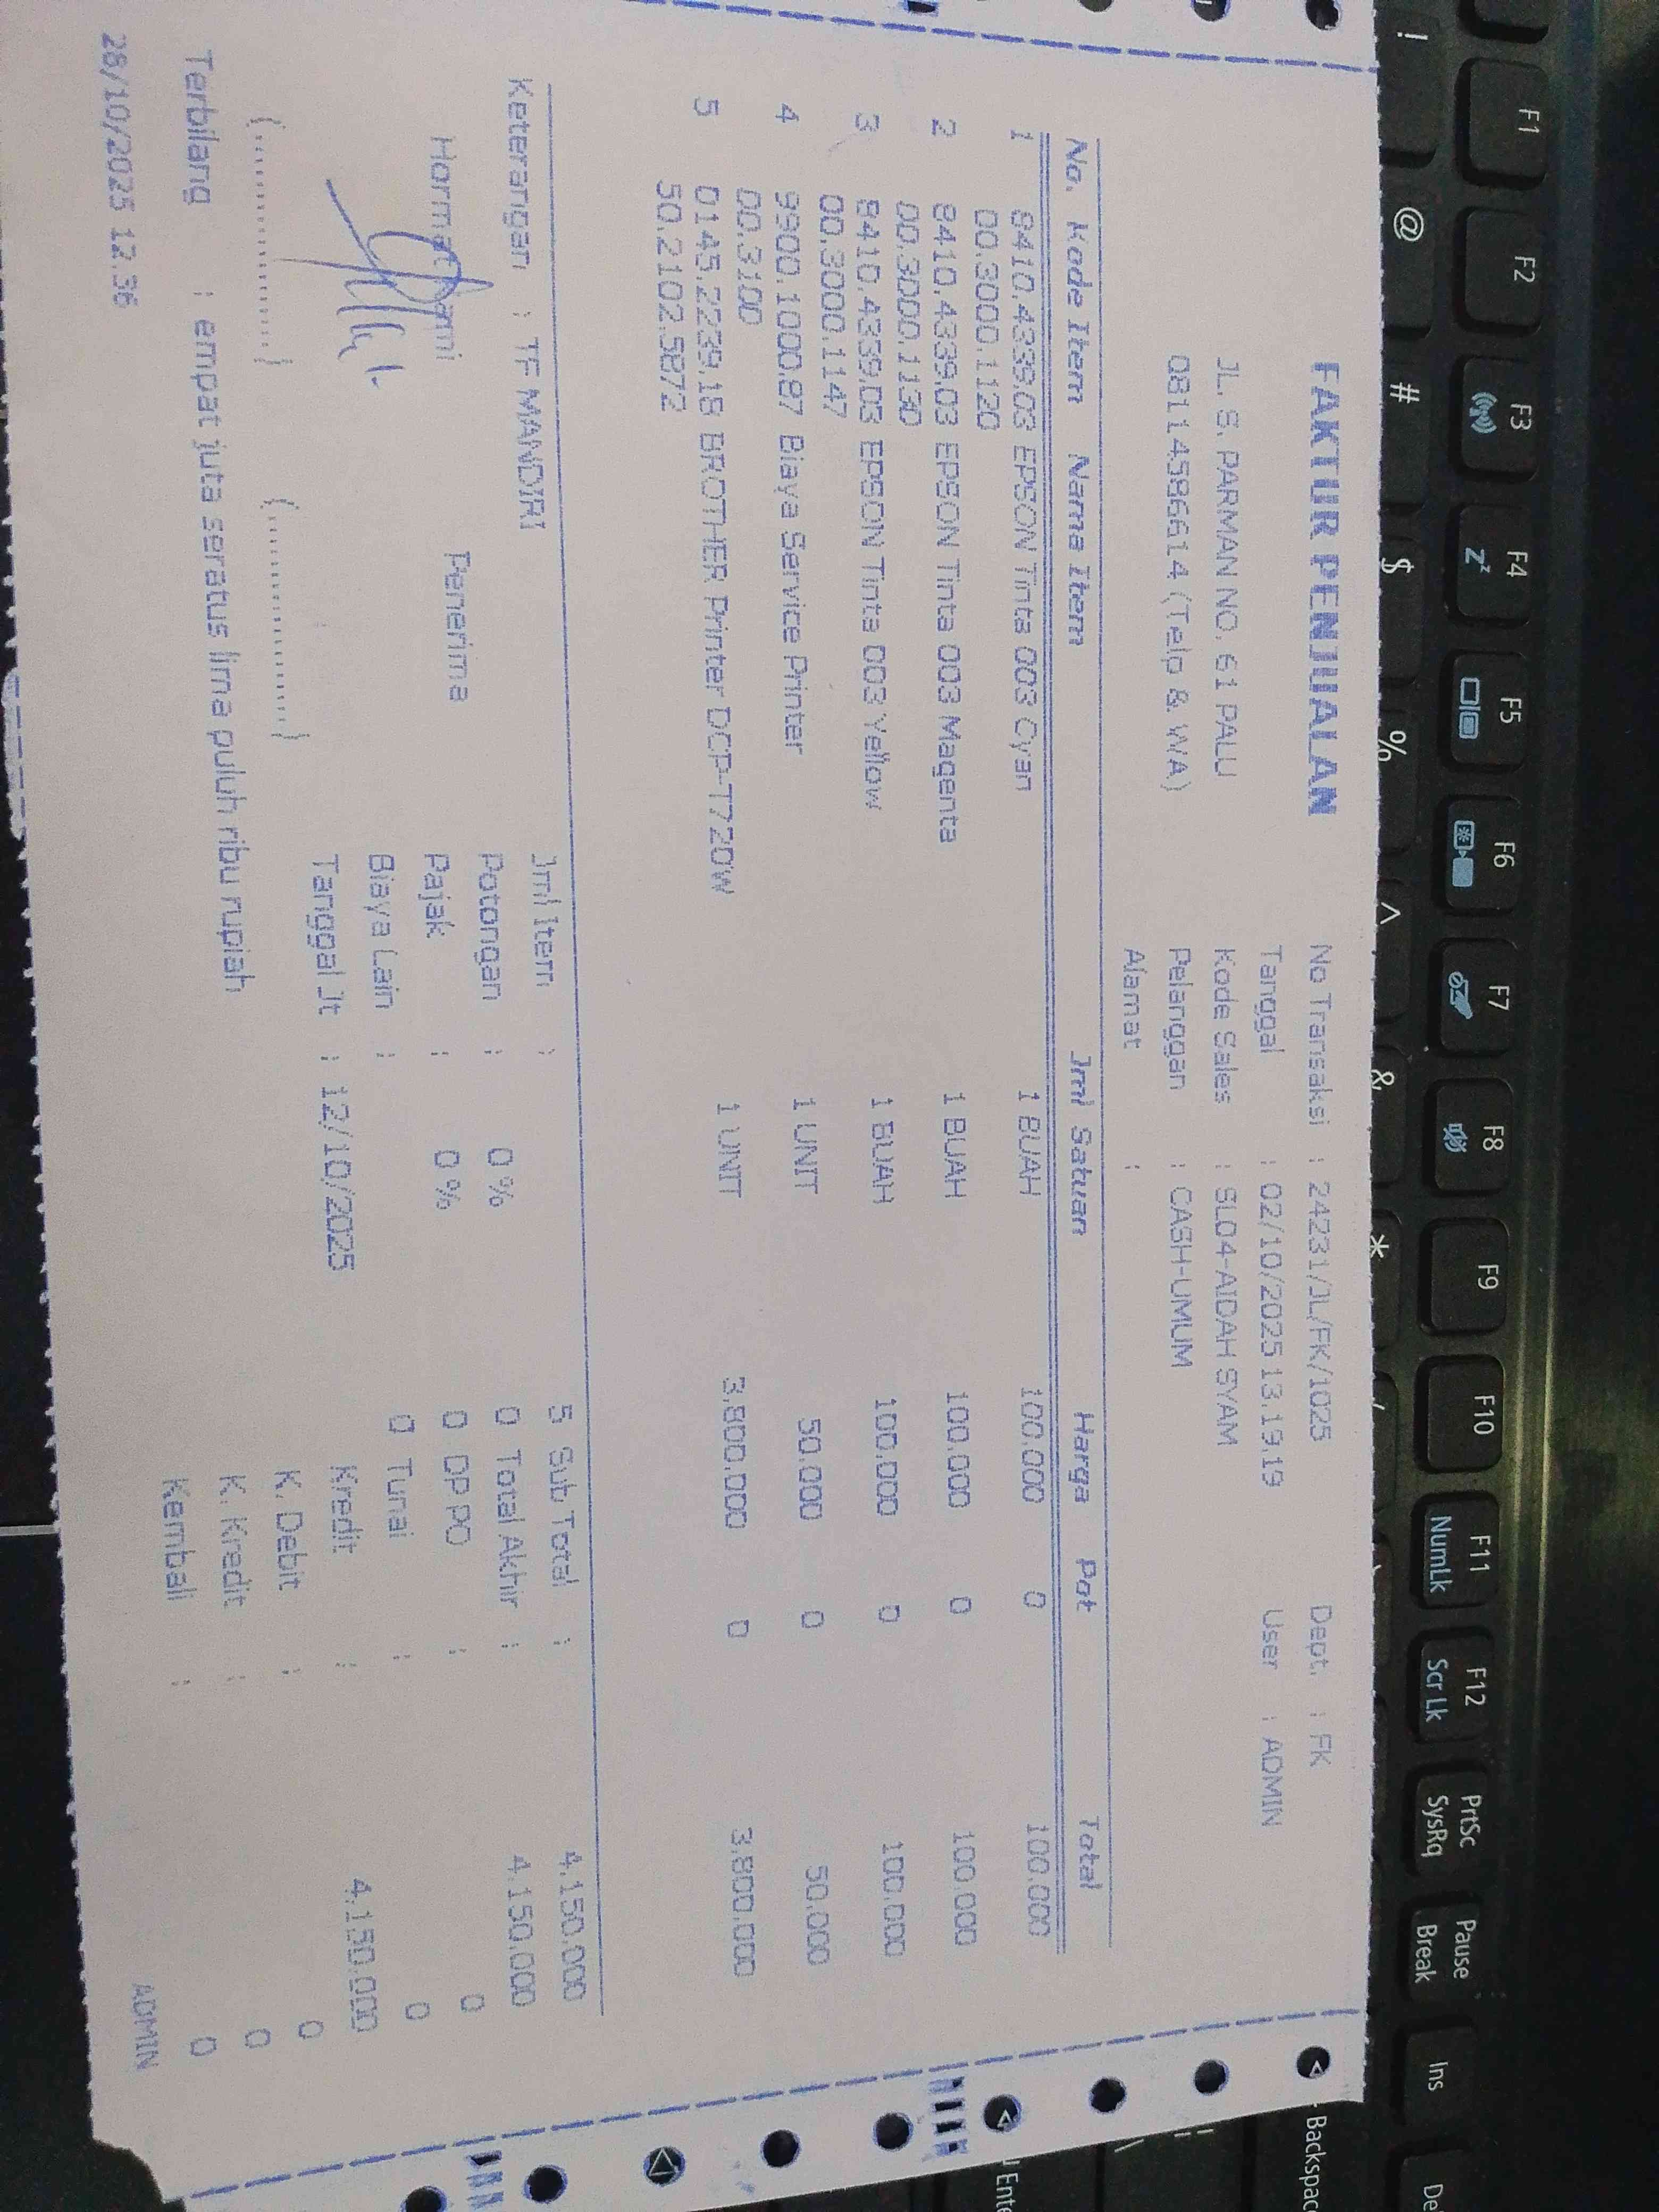 FAKTUR PENJUALAN
JL. S. PARMAN NO. 61 PALU
08114586614 (Telp & WA)
No Transaksi : 24231/JL/FK/1025 Dept. : FK
Tanggal : 02/10/2025 13.19.19 User : ADMIN
Kode Sales : SL04-AIDAH SYAM
Pelanggan : CASH-UMUM
Alamat :
No. Kode Item Nama Item Jml Satuan Harga Pot Total
1 8410.4339.03 EPSON Tinta 003 Cyan 1 BUAH 100.000 0 100.000
00.3000.1120
2 8410.4339.03 EPSON Tinta 003 Magenta 1 BUAH 100.000 0 100.000
00.3000.1130
3 8410.4339.03 EPSON Tinta 003 Yellow 1 BUAH 100.000 0 100.000
00.3000.1147
4 9900.1000.87 Biaya Service Printer 1 UNIT 50.000 0 50.000
00.3100
5 0145.2239.18 BROTHER Printer DCP-T720W 1 UNIT 3.800.000 0 3.800.000
50.2102.5872
Keterangan : TF MANDIRI Jml Item : 5 Sub Total : 4.150.000
Potongan : 0 % 0 Total Akhir : 4.150.000
Hormat Kami Penerima Pajak : 0 % 0 DP PO : 0
Biaya Lain : 0 Tunai : 0
Tanggal Jt : 12/10/2025 Kredit : 4.150.000
K. Debit : 0
(..............) (..............) K. Kredit : 0
Terbilang : empat juta seratus lima puluh ribu rupiah Kembali : 0
28/10/2025 12.36 ADMIN
F1 F2 F3 F4 F5 F6 F7 F8 F9 F10 F11 F12 PrtSc Pause Ins De
zᶻ NumLk Scr Lk SysRq Break
! @ # $ % ^ & * Backspac
Ente